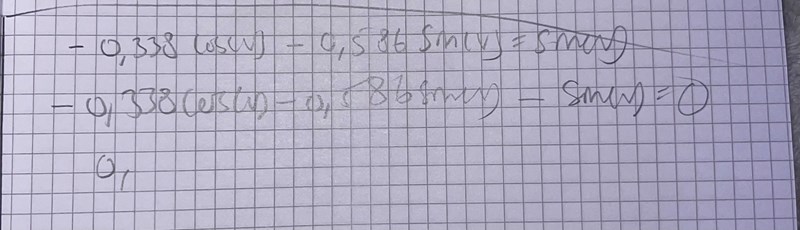 - 0,338 cos(v) - 0,586 sin(v) = sin(v)
- 0,338 cos(v) - 0,586 sin(v) - sin(v) = 0
0,